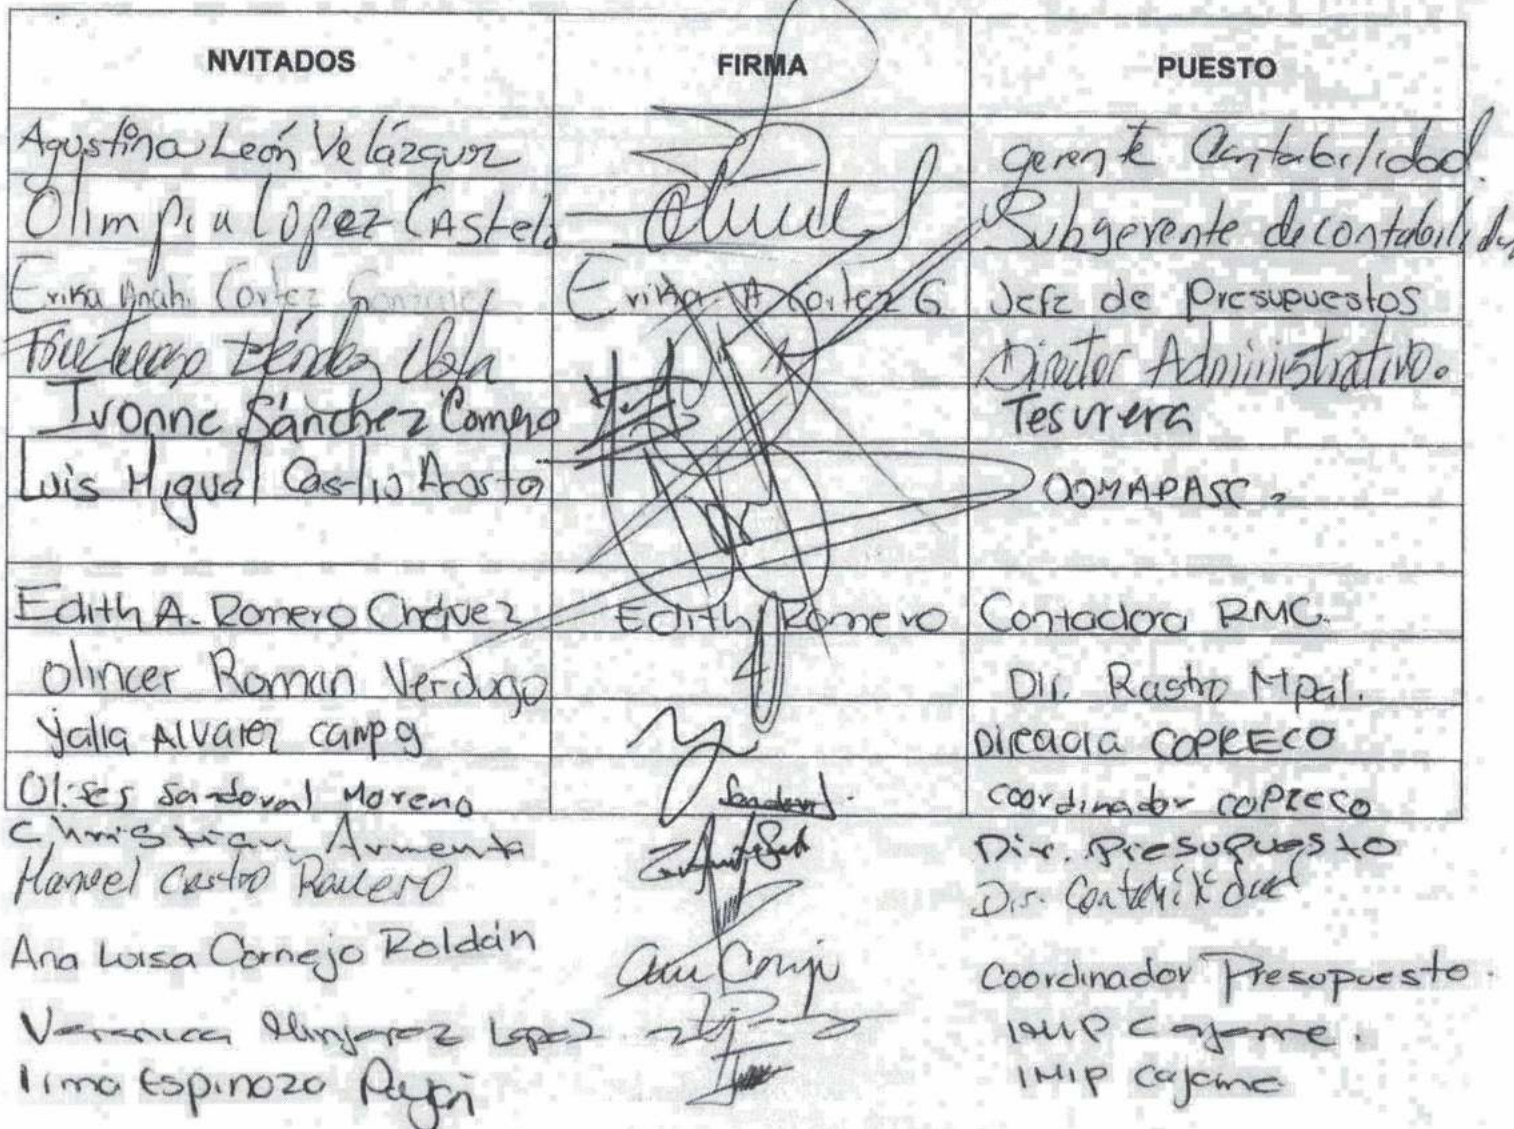 NVITADOS FIRMA PUESTO
Agustina León Velázquez gerente Contabilidad.
Olimpia Lopez Castelo Subgerente de contabilidad
Erika Anahi Cortez Gonzalez Erika A Cortez G Jefe de Presupuestos
Méndez Director Administrativo.
Ivonne Sánchez Romero Tesorera
Luis Miguel Castro Acosta OOMAPASC.
Edith A. Romero Chávez Edith Romero Contadora RMC.
Olincer Roman Verdugo Dir. Rastro Mpal.
Yalia Alvarez campo Directora COPRECO
Ulises Sandoval Moreno Sandoval. coordinador COPRECO
Christian Armenta Dir. Presupuesto
Manuel Castro Romero Dir. Contabilidad
Ana Luisa Cornejo Roldán Ana Cornejo Coordinador Presupuesto.
Veronica Minjarez Lopez IMIP Cajeme.
Irma Espinoza Payán IMIP Cajeme